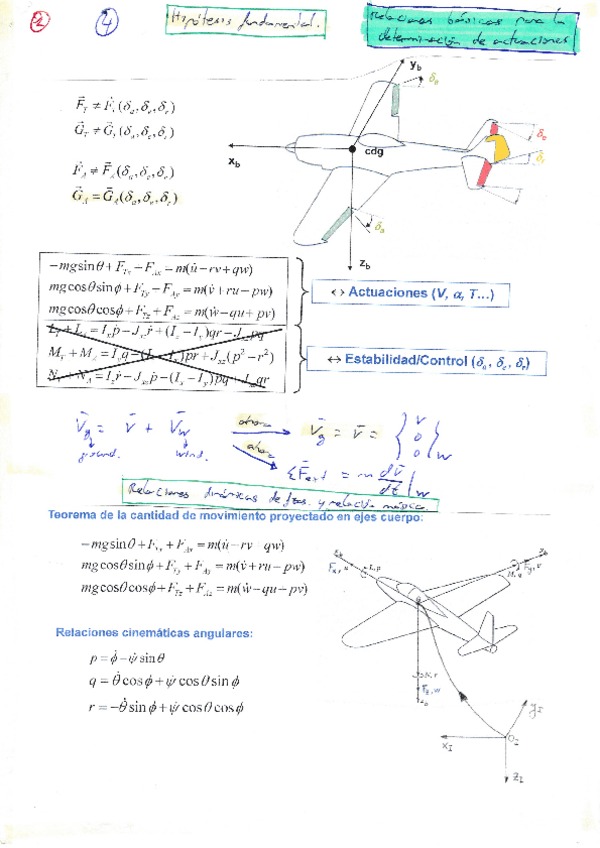 2
4
Hipótesis fundamental.
Relaciones básicas para la
determinación de actuaciones
F⃗_T ≠ F⃗_T(δ_a, δ_e, δ_r)
G⃗_T ≠ G⃗_T(δ_a, δ_e, δ_r)
F⃗_A ≠ F⃗_A(δ_a, δ_e, δ_r)
G⃗_A = G⃗_A(δ_a, δ_e, δ_r)
y_b
δ_a
x_b
cdg
δ_e
δ_r
δ_a
z_b
-mg sinθ + F_Tx - F_Ax = m(u̇ - rv + qw)
mg cosθ sinφ + F_Ty - F_Ay = m(v̇ + ru - pw)
mg cosθ cosφ + F_Tz + F_Az = m(ẇ - qu + pv)
↔ Actuaciones (V, α, T...)
L_T + L_A = I_x ṗ - J_xz ṙ + (I_z - I_y)qr - J_xz pq
M_T + M_A = I_y q̇ - (I_z - I_x)pr + J_xz(p² - r²)
N_T + N_A = I_z ṙ - J_xz ṗ - (I_x - I_y)pq - J_xz qr
↔ Estabilidad/Control (δ_a, δ_e, δ_r)
V̄_g = V̄ + V̄_w
ground. wind.
ahora
V̄_g = V̄ = {V 0 0}_w
ahora
ΣF̄_ext = m dV̄/dt |_w
Relaciones dinámicas de fzas. y relación másica.
Teorema de la cantidad de movimiento proyectado en ejes cuerpo:
-mg sinθ + F_Tx + F_Ax = m(u̇ - rv qw)
mg cosθ sinφ + F_Ty + F_Ay = m(v̇ + ru - pw)
mg cosθ cosφ + F_Tz + F_Az = m(ẇ - qu + pv)
x_b
F_x, u
L, p
y_b
F_y, v
M, q
N, r
F_z, w
z_b
Relaciones cinemáticas angulares:
p = φ̇ - ψ̇ sinθ
q = θ̇ cosφ + ψ̇ cosθ sinφ
r = -θ̇ sinφ + ψ̇ cosθ cosφ
y_I
x_I
O_I
z_I